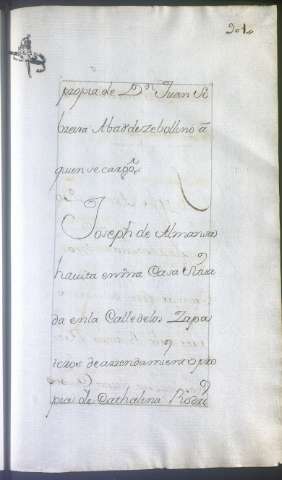 201.
propia de Dn Juan Ri
breira Abad de Zebollino á
quien se cargó.
Joseph de Almansa
havita en una Casa situa
da en la Calle de los Zapa
teros de arrendamiento pro
pia de Cathalina Rodri